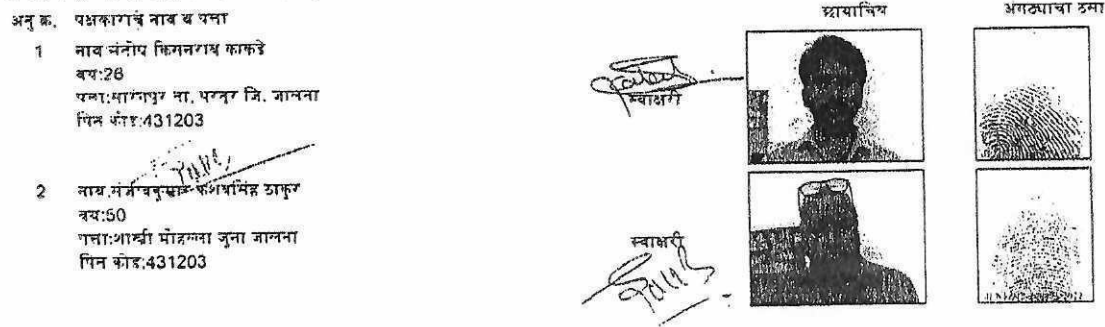 अनु क्र. पक्षकाराचे नाव व पत्ता छायाचित्र अंगठ्याचा ठसा
1 नाव संदीप किसनराव काकडे
वय:26
पत्ता: ता. परतुर जि. जालना
पिन कोड:431203
स्वाक्षरी
2 नाव ठाकुर
वय:50
पत्ता:शास्त्री मोहल्ला जुना जालना
पिन कोड:431203
स्वाक्षरी